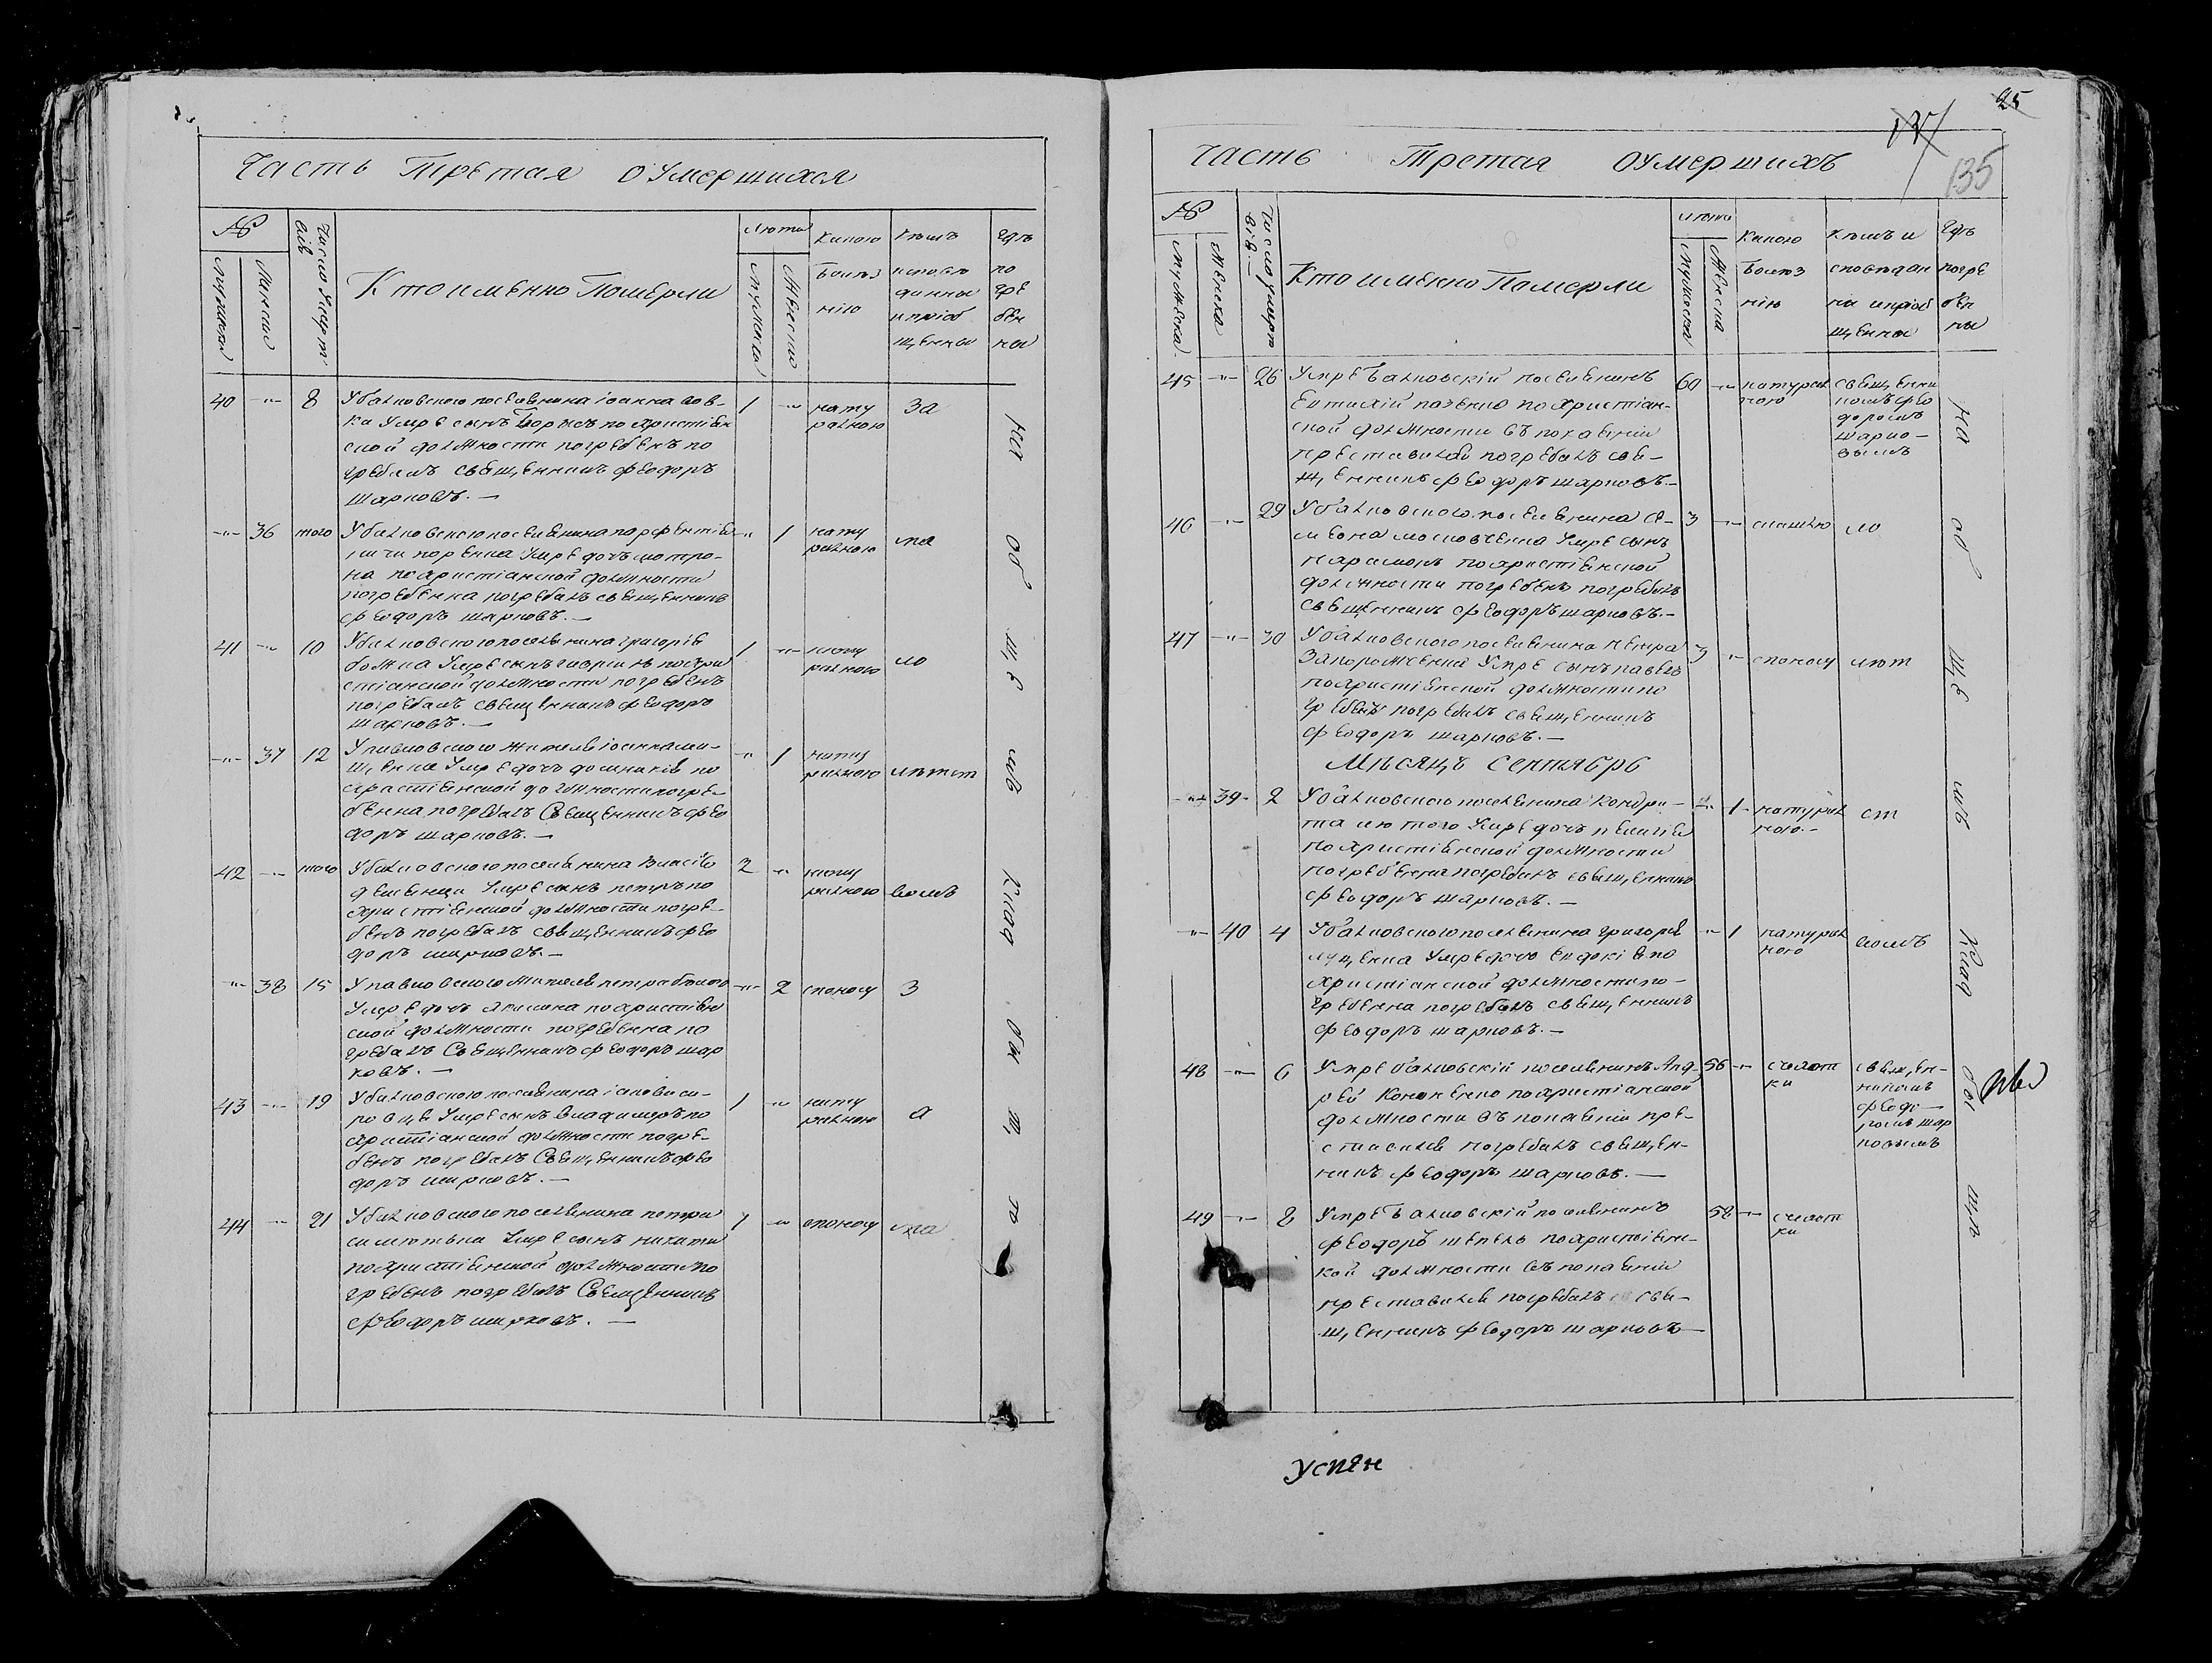 Часть Третая о Умершихся
№ Число умерт вій Кто именно Померли Лѣта Какою Болѣз нію Кѣмъ исповѣ данны и пріоб щенны Гдѣ по гре бен ны
40 -"- 8 У балковского поселянина іоанна вов-
ка Умре сынъ Борисъ по христіян
ской должности погребенъ по
гребалъ священникъ феодоръ
шарковъ.—
1 -"- нату ралною За
-"- 36 того У балковского поселянина порфентія
Умре дочъ мотро-
на по христіанской должности
погребенна погребалъ священникъ
феодоръ шарковъ.—
-"- 1 нату ралною ма
41 -"- 10 У балковского поселянина григорія
божка Умре сынъ георги по хри
стіанской должности погребенъ
погребалъ священникъ феодоръ
шарковъ.—
1 -"- нату ралною ло
-"- 37 12 У павловского жителя іоанна
Умре дочъ домникія по
христіянской должности погре-
бенна погребалъ Священникъ фео
доръ шарковъ.—
-"- 1 нату ралною лѣтст
42 -"- того У балковского поселянина Власія
Умре сынъ петръ по
христіянской должности погре-
бенъ погребалъ священникъ фео
доръ шарковъ.—
2 -"- нату ралною вомъ
-"- 38 15 У павловского жителя петра
Умре дочъ Акилина по христіян
ской должности погребенна по
гребалъ Священникъ феодоръ шар
ковъ.—
-"- 2 поносу З
43 -"- 19 У балковского поселянина іакова си-
Умре сынъ владимеръ по
христіанской должности погре-
бенъ погребалъ Священникъ фео
доръ шарковъ.—
1 -"- нату ралною а
44 -"- 21 У балковского поселянина петра
Умре сынъ никита
по христіянской должности по
гребенъ погребалъ Священникъ
феодоръ шарковъ.—
1 -"- поносу ма
На об ще мъ клад би щ ѣ
25
135
Часть Третая о умершихъ
№ Мужеска Женска Число умерт вія Кто именно Померли лѣта Мужеска Женска Какою Болѣз нію Кѣмъ и споведан ны и пріоб щенны Гдѣ погре бен ны
45 -"- 26 Умре Балковскій поселянинъ
Евтихій по христіан-
ской должности въ покаяніи
преставилъся погребалъ све-
щенникъ феодоръ шарковъ.—
60 -"- натурал ною священни комъ фео доромъ шарко- вымъ
46 -"- 29 У балковского поселянина си-
меона московченка Умре сынъ
парамонъ по христіянской
должности погребенъ погребалъ
священникъ феодоръ шарковъ.—
3 -"- ло
47 -"- 30 У балковского поселянина петра
Запорожченка Умре сынъ павелъ
по христіянской должности по
гребенъ погребалъ священникъ
феодоръ шарковъ.—
3 -"- споносу лѣт
Мѣсяцъ Сентябрь
-"- 39 2 У балковского поселянина Кондра-
та лютого Умре дочъ пелагія
по христіянской должности
погребенна погребалъ священникъ
феодоръ шарковъ.—
-"- 1 натурал ною.- ст
-"- 40 4 У балковского поселянина григорія
луценка Умре дочъ Евдокія по
христіанской должности по-
гребенна погребалъ священникъ
феодоръ шарковъ.—
-"- 1 натурал ною вомъ
48 -"- 6 Умре балковскій поселянинъ Анд-
рей Кононенко по христіанской
должности въ покаяніи пре-
ставился погребалъ священ-
никъ феодоръ шарковъ.—
56 -"- сухот ки священ- никомъ феодо- ромъ шар ковымъ
49 -"- 8 Умре Балковскій поселянинъ
феодоръ шепель по христіянс-
кой должности въ покаяніи
преставился погребалъ свя-
щенникъ феодоръ шарковъ—
58 -"- сухот ки
На об ще мъ клад би щѣ
успен